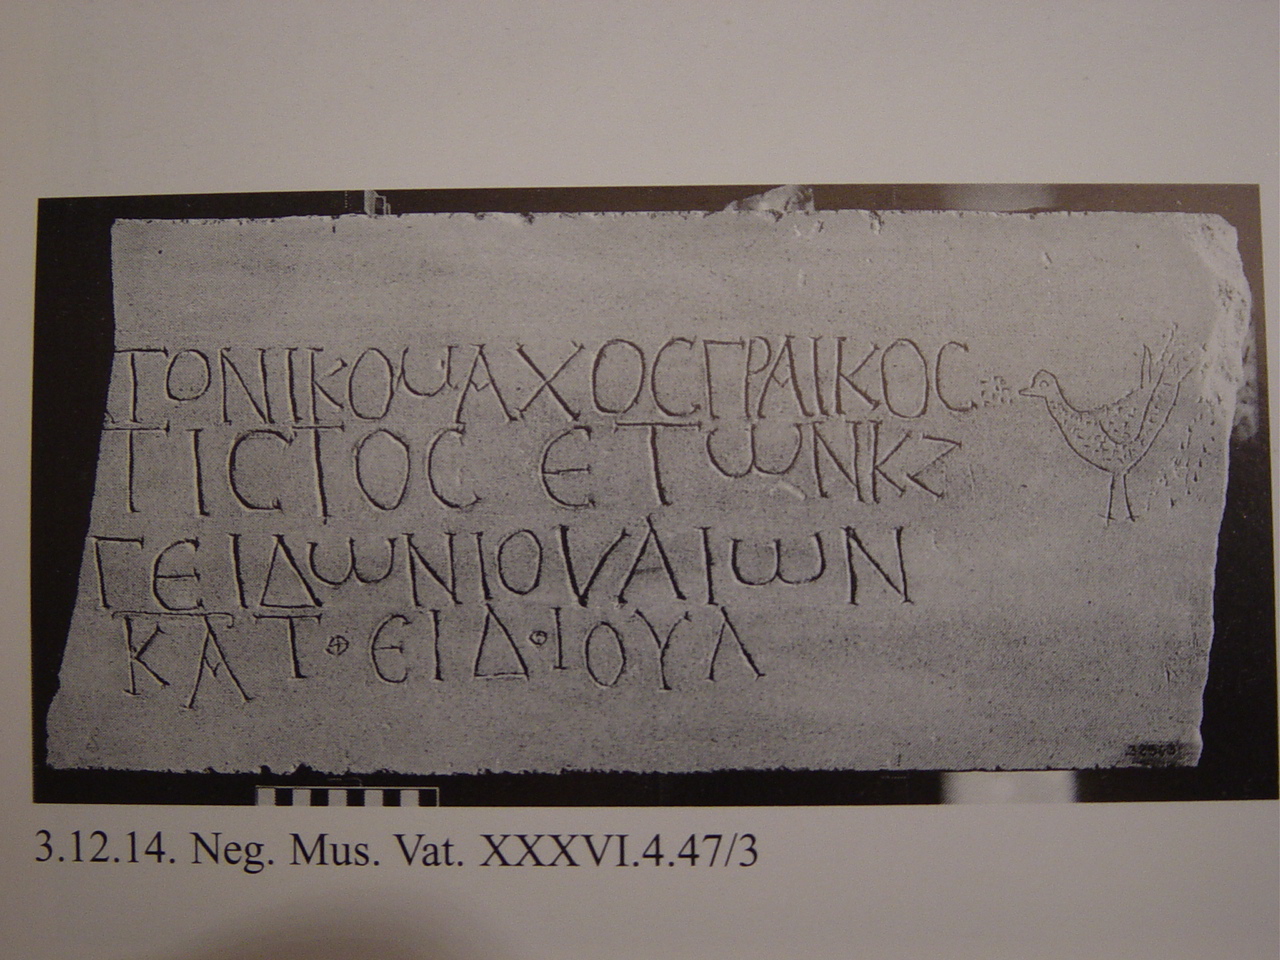 ΤΟΝΙΚΟΜΑΧΟCΓΡΑΙΚΟC
ΤΙCΤΟC ΕΤΩΝΚΖ
ΓΕΙΔΩΝΙΟVΛΙΩΝ
ΚΑΤ·ΕΙΔ·ΙΟΥΛ
3.12.14. Neg. Mus. Vat. XXXVI.4.47/3